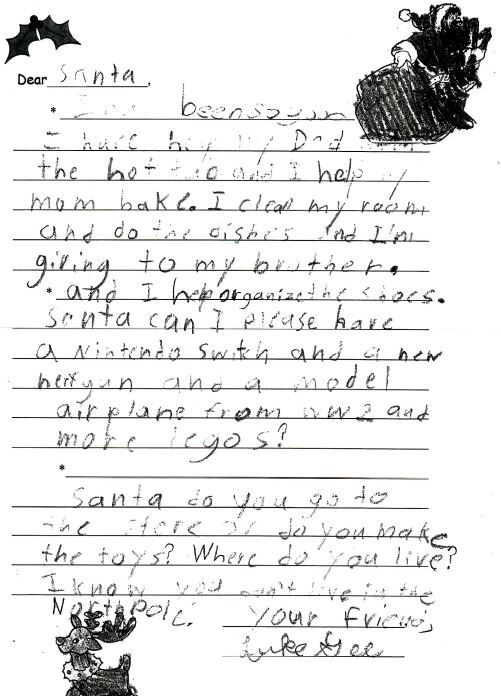 Dear Santa,
* I been
I have help my Dad with
the hot tub and I help my
mom bake. I clean my room
and do the dishes and I'm
giving to my brother.
* and I help organize the shoes.
Santa can I please have
a Nintendo switch and a new
nerf gun and a model
airplane from WW2 and
more legos?
*
Santa do you go to
the store or do you make
the toys? Where do you live?
I know you don't live in the
North Pole.
Your friend,
Luke